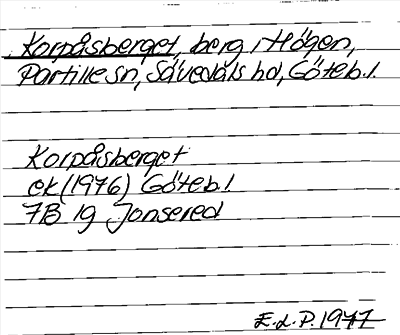 Korpåsberget, berg i Högen,
Partille sn, Sävedals hd, Göteb. l.
Korpåsberget
ek (1976) Göteb. l
7B 1g Jonsered
E.L.P. 1977